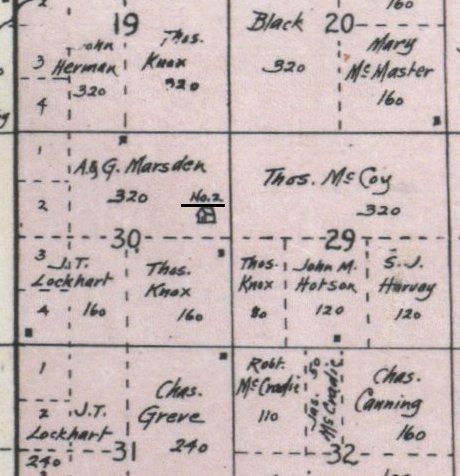 2
19
20
160
3
4
John
Herman
320
Thos.
Knox
320
Black
320
Mary
McMaster
160
1
2
A & G. Marsden
320
No. 2
30
Thos. McCoy
320
29
3
4
J.T.
Lockhart
160
Thos.
Knox
160
Thos.
Knox
80
John M.
Hotson
120
S. J.
Harvay
120
1
2
J.T.
Lockhart
240
Chas.
Greve
240
31
Robt.
McCradie
110
Jas. 50
McCradie
Chas.
Canning
160
32